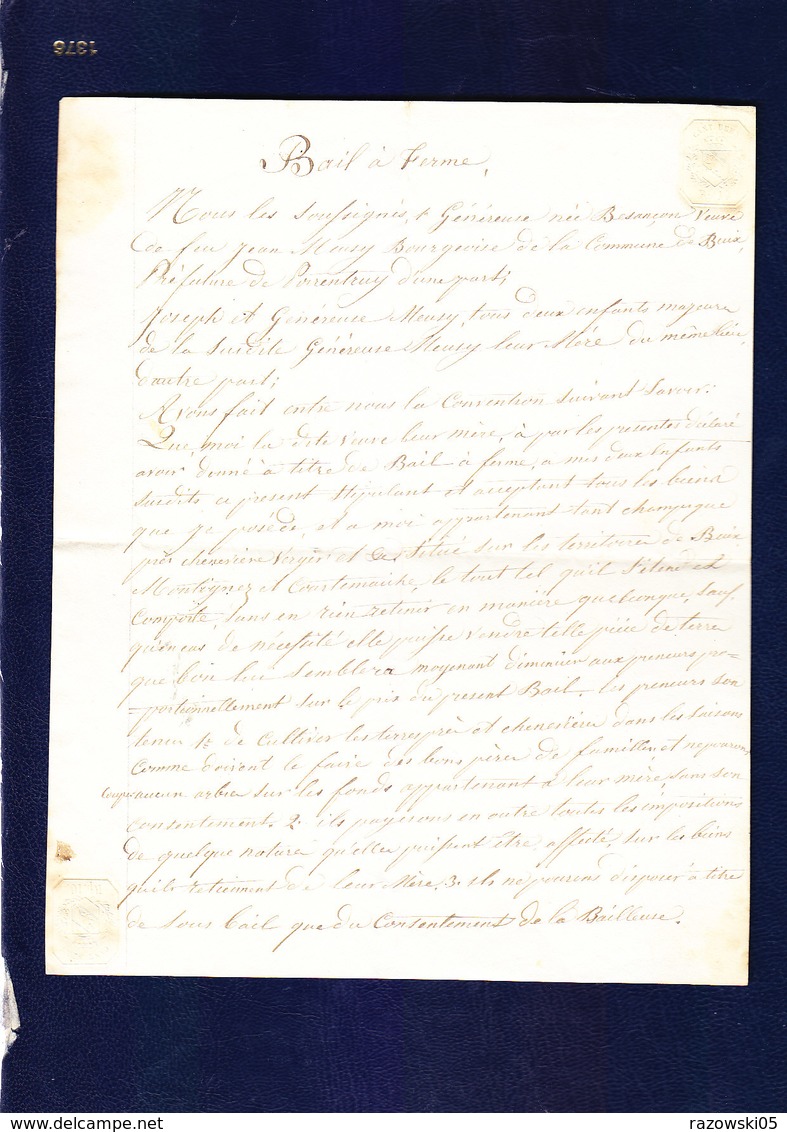 1376
Bail à Ferme,
Nous les soussignés, Généreuse née Besançon Veuve
de feu Jean Meusy Bourgeoise de la Commune de Buix,
Préfecture de Porrentruy d'une part;
Joseph et Généreuse Meusy, tous deux enfants majeurs
de la susdite Généreuse Meusy leur Mère du même lieu,
d'autre part;
Avons fait entre nous la Convention suivant Savoir:
Que, moi la dite Veuve leur mère, à par les presentes déclaré
avoir donné à titre de Bail à ferme, a mes deux Enfants
susdits ce present stipulant et acceptant tous les biens
que je posède, et a moi appartenant tant champs que
près chenevière Verger et situé sur les territoire de Buix
Montignez et Courtemaiche, le tout tel qu'il s'étend et
Comporte, sans en rien retenir en manière quelconque, sauf
qu'en cas de nécessité elle puisse vendre telle pièce de terre
que bon leu semblera moyenant diminuer aux preneurs pro=
=portionnellement sur le prix du present Bail. les preneurs son
tenu 1º de Cultiver les terres près et chenevière dans les saisons
Comme doivent le faire des bons pères de familles et ne pourons
Coupé aucun arbre sur les fonds appartenant à leur mère sans son
consentement. 2º ils payerons en outre toutes les impositions
de quelque nature qu'elles puissent être affecté, sur les biens
qu'ils retiennent de leur Mère. 3º ils ne pourons disposer à titre
de sous bail que du Consentement de la Bailleuse.
www.delcampe.net
razowski05